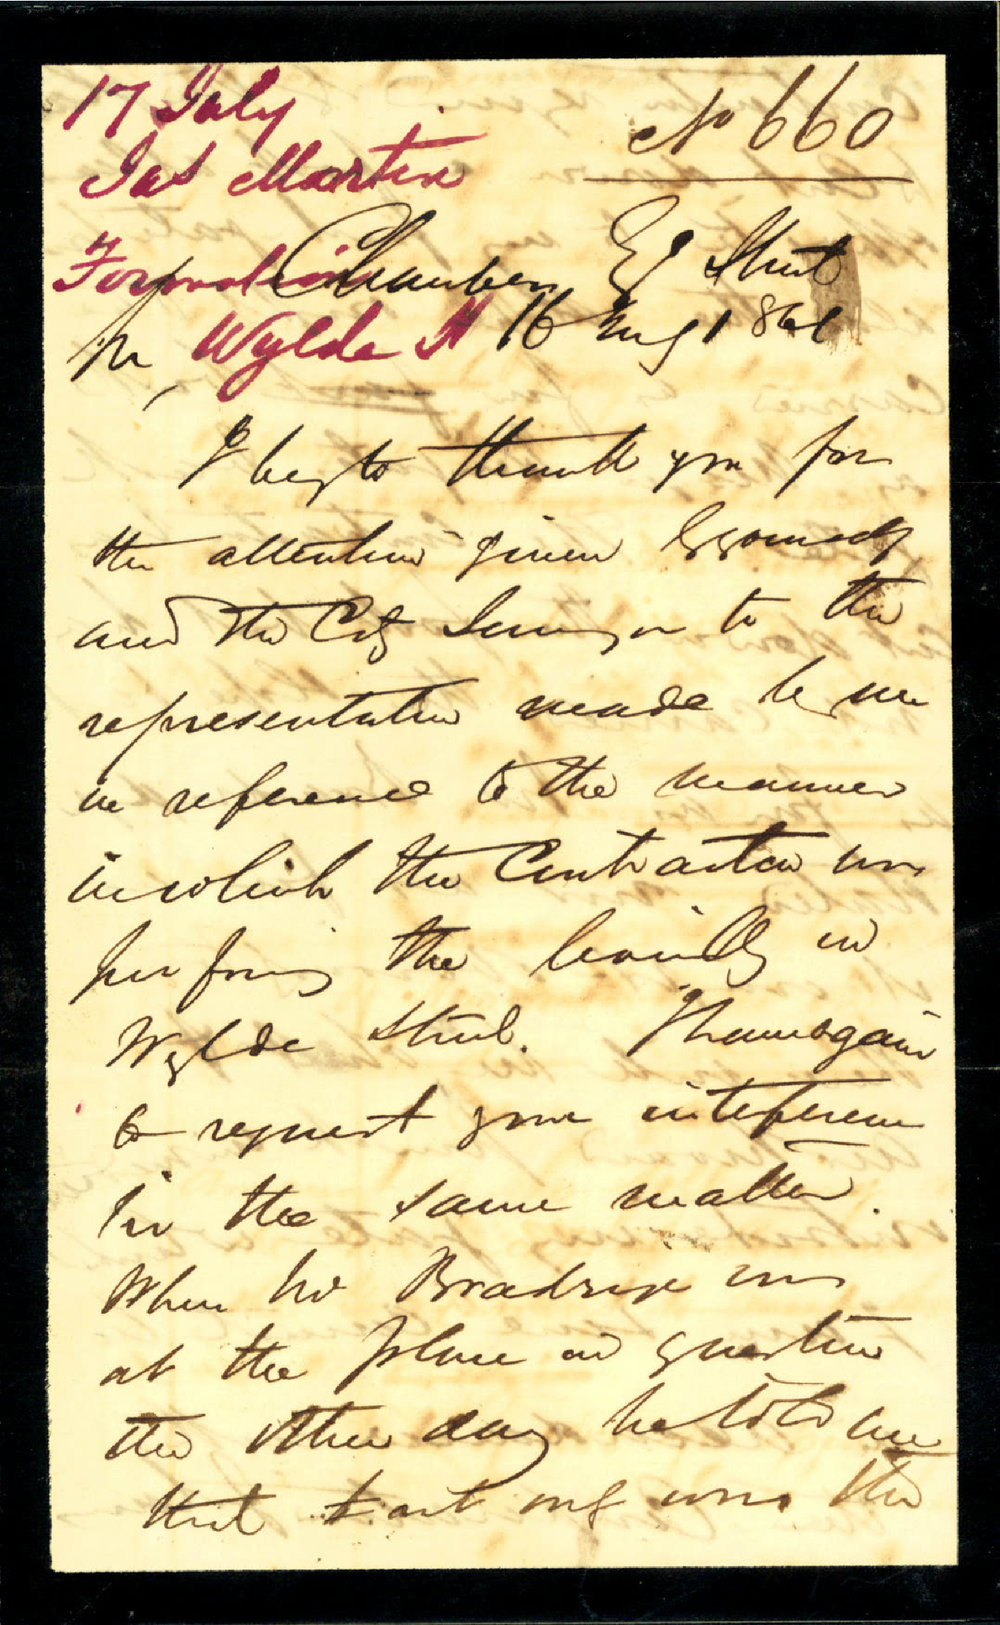 17 July
No 660
Jas Martin
Formation
Chambers Ey Street
Wylde St
16 Aug 1861
Sir,
I beg to thank you for
the attention given by yourself
and the City Surveyor to the
representation made by me
in reference to the manner
in which the Contractor was
performing the levelling in
Wylde Street. I have again
to request your interference
in the same matter.
When Mr Bradridge was
at the place in question
the other day he told me
that not only was the